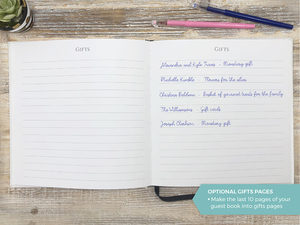 GIFTS
GIFTS
Alexandra and Kyle Trans - Monetary gift
Michelle Kimble - Flowers for the altar
Christina Robbins - Basket of gourmet treats for the family
The Williamsons - Gift cards
Joseph Abraham - Monetary gift
OPTIONAL GIFTS PAGES
• Make the last 10 pages of your
guest book into gifts pages